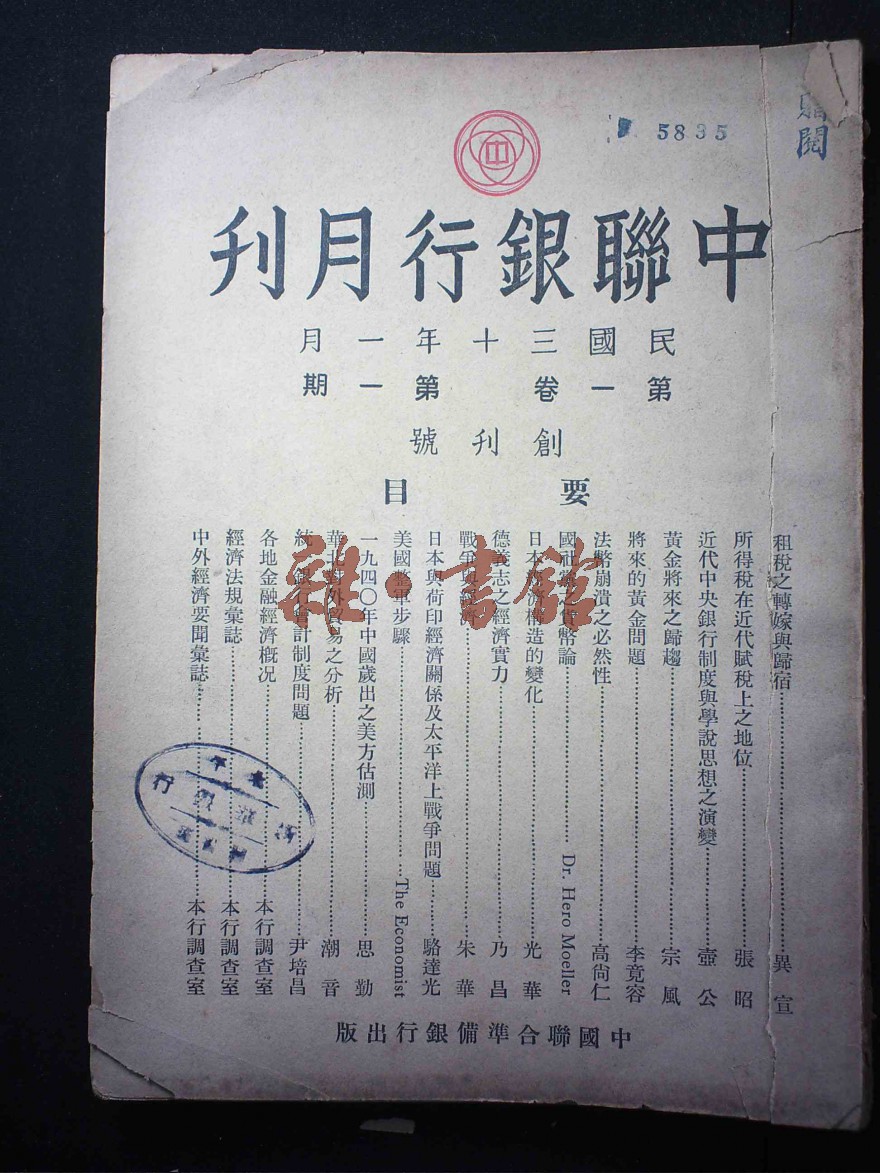 5835
閱
中
中聯銀行月刊
民國三十年一月
第一卷第一期
創刊號
要目
租稅之轉嫁與歸宿……異宣
所得稅在近代賦稅上之地位……張昭
近代中央銀行制度與學說思想之演變……壺公
黃金將來之歸趨……宗風
將來的黃金問題……李竟容
法幣崩潰之必然性……高尙仁
國社 之貨幣論……Dr. Hero Moeller
日本 濟構造的變化……光華
德義志之經濟實力……乃昌
戰爭與經濟……朱華
日本與荷印經濟關係及太平洋上戰爭問題……駱達光
美國整軍步驟……The Economist
一九四〇年中國歲出之美方估測……思勤
華北對外貿易之分析……潮音
統一銀行會計制度問題……尹培昌
各地金融經濟概況……本行調查室
經濟法規彙誌……本行調查室
中外經濟要聞彙誌……本行調查室
中國聯合準備銀行出版
雜·書館